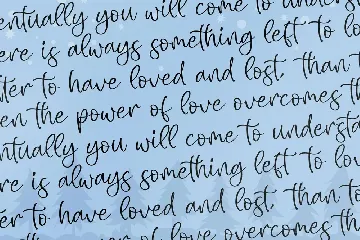 entually you will come to understa
ere is always something left to lo
tter to have loved and lost, than t
en the power of love overcomes th
ntually you will come to understa
re is always something left to lov
er to have loved and lost, than to
power of love overcomes th